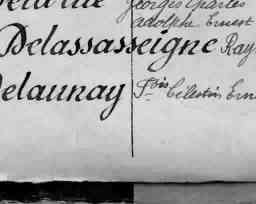 Georges Charles
Adolphe Ernest
Delassasseigne Ray
Delaunay Fois Célestin Ern